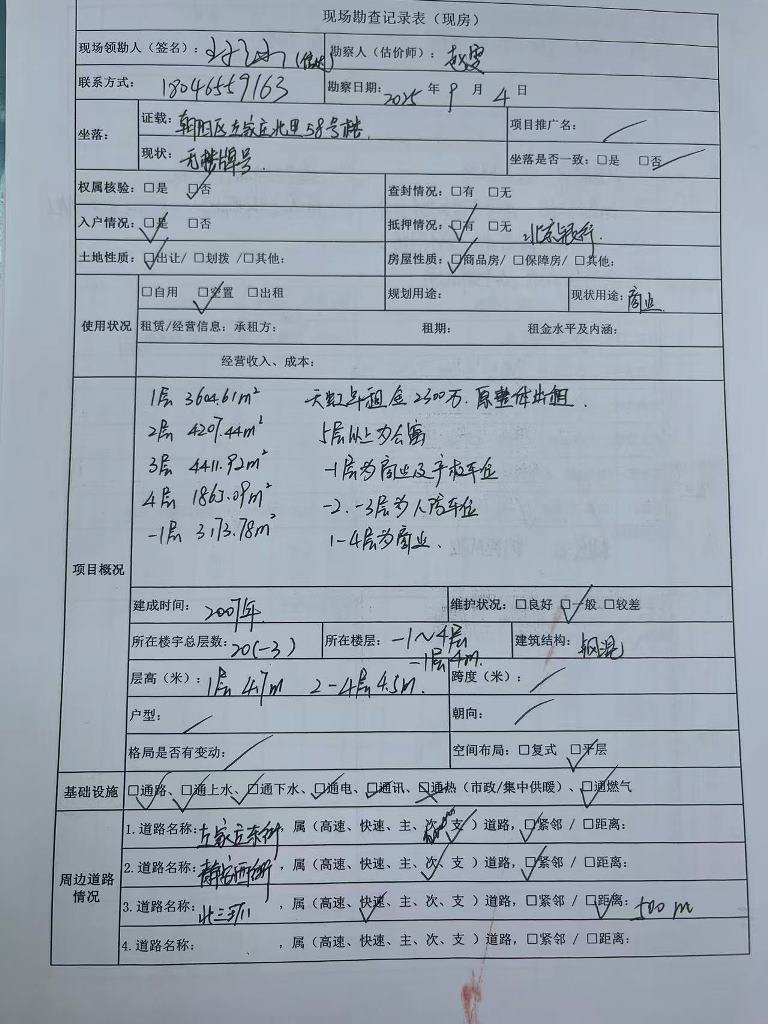 现场勘查记录表（现房）
现场领勘人（签名）： 勘察人（估价师）：
联系方式： 18046559163 勘察日期：2025年9月4日
坐落： 证载：朝阳区左家庄北里58号楼 项目推广名：
现状：无楼牌号 坐落是否一致：□是 □否
权属核验：□是 □否 查封情况：□有 □无
入户情况：□是 □否 抵押情况：□有 □无 北京银行
土地性质：□出让/ □划拨 /□其他： 房屋性质：□商品房/ □保障房/ □其他：
使用状况 □自用 □空置 □出租 规划用途： 现状用途：商业
租赁/经营信息：承租方： 租期： 租金水平及内涵：
经营收入、成本：
项目概况
1层 3604.61m² 天虹年租金2300万.原整体出租.
2层 4207.44m² 5层以上为公寓
3层 4411.92m² -1层为商业及产权车位
4层 1863.09m² -2.-3层为人防车位
-1层 3173.78m² 1-4层为商业.
建成时间：2007年 维护状况：□良好 □一般 □较差
所在楼宇总层数：20(-3) 所在楼层：-1~4层 建筑结构：钢混
层高（米）：1层 4.7m 2-4层 4.5m. -1层4m. 跨度（米）：
户型： 朝向：
格局是否有变动： 空间布局：□复式 □平层
基础设施 □通路、□通上水、□通下水、□通电、□通讯、□通热（市政/集中供暖）、□通燃气
周边道路情况
1.道路名称：左家庄东街，属（高速、快速、主、次、支）道路，□紧邻 / □距离：
2.道路名称：静安西街，属（高速、快速、主、次、支）道路，□紧邻 / □距离：
3.道路名称：北三环，属（高速、快速、主、次、支）道路，□紧邻 / □距离：500m
4.道路名称： ，属（高速、快速、主、次、支）道路，□紧邻 / □距离：